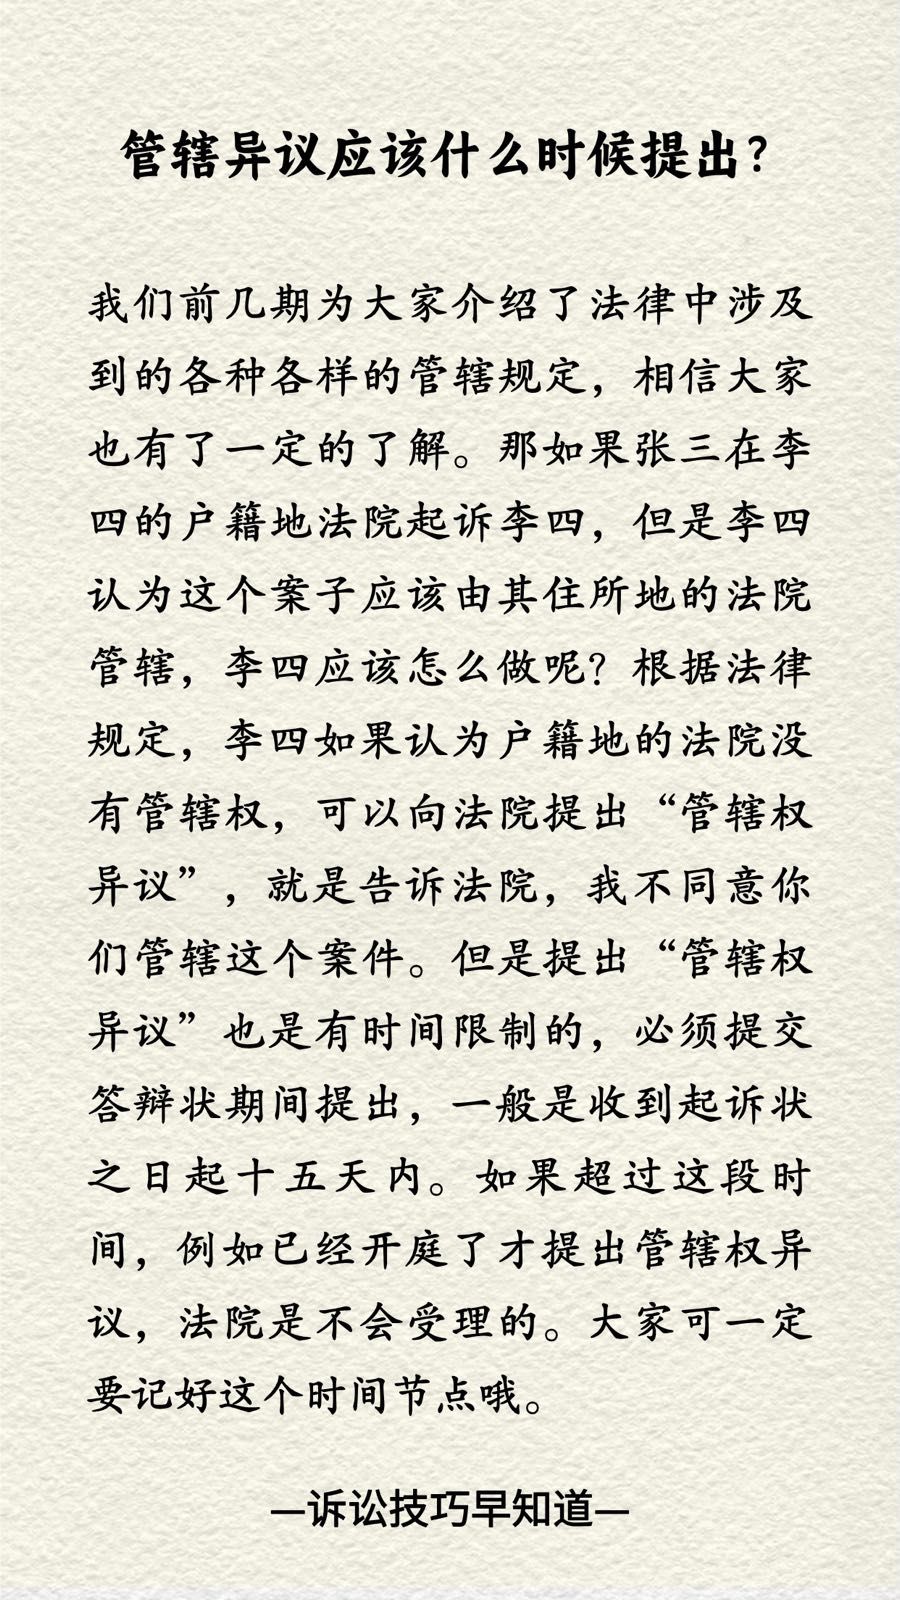 管辖异议应该什么时候提出？
我们前几期为大家介绍了法律中涉及
到的各种各样的管辖规定，相信大家
也有了一定的了解。那如果张三在李
四的户籍地法院起诉李四，但是李四
认为这个案子应该由其住所地的法院
管辖，李四应该怎么做呢？根据法律
规定，李四如果认为户籍地的法院没
有管辖权，可以向法院提出“管辖权
异议”，就是告诉法院，我不同意你
们管辖这个案件。但是提出“管辖权
异议”也是有时间限制的，必须提交
答辩状期间提出，一般是收到起诉状
之日起十五天内。如果超过这段时
间，例如已经开庭了才提出管辖权异
议，法院是不会受理的。大家可一定
要记好这个时间节点哦。
—诉讼技巧早知道—